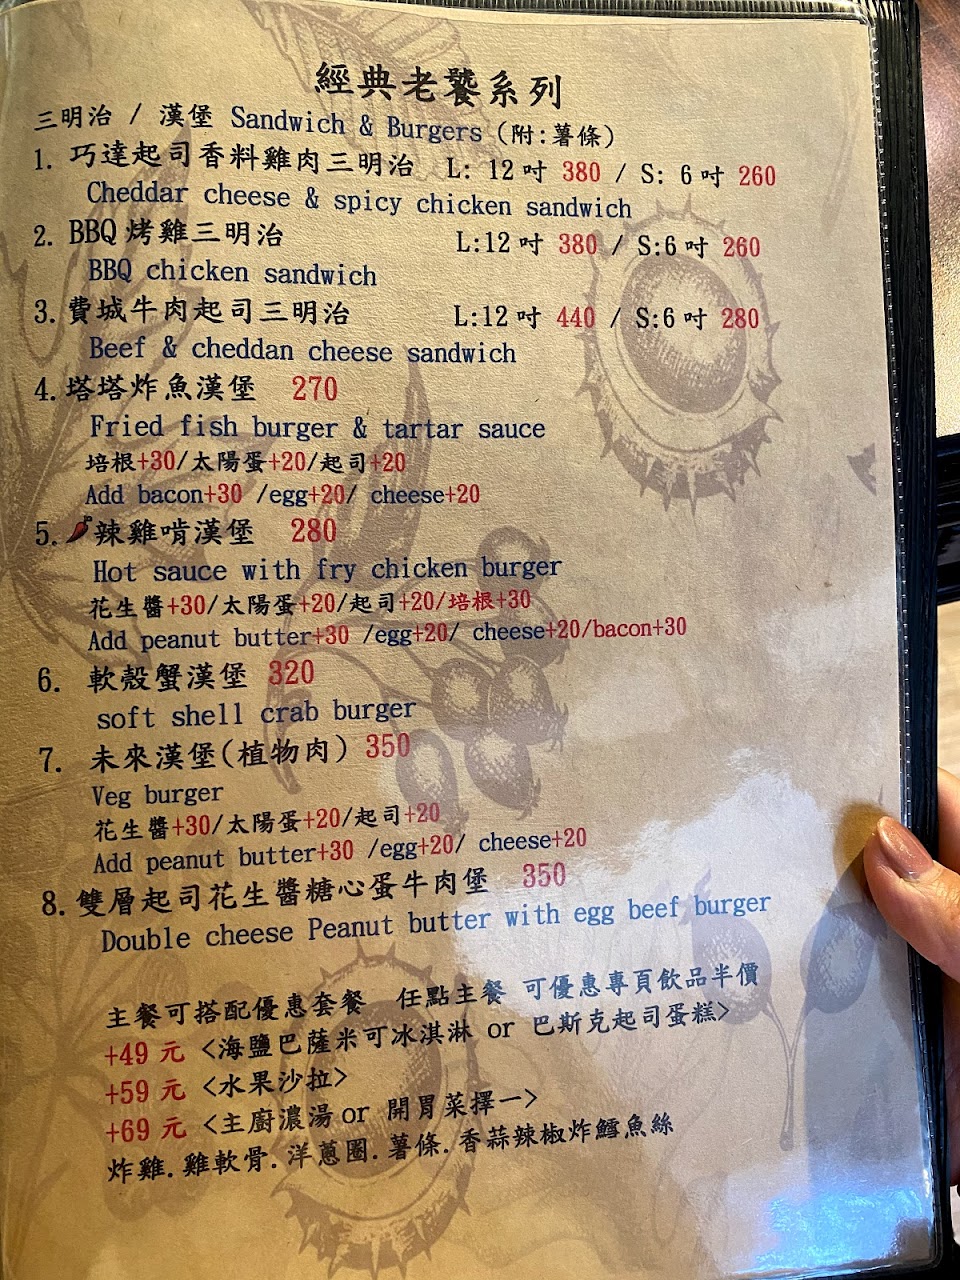 經典老饕系列
三明治 / 漢堡 Sandwich & Burgers (附:薯條)
1. 巧達起司香料雞肉三明治 L: 12吋 380 / S: 6吋 260
Cheddar cheese & spicy chicken sandwich
2. BBQ 烤雞三明治 L:12吋 380 / S:6吋 260
BBQ chicken sandwich
3. 費城牛肉起司三明治 L:12吋 440 / S:6吋 280
Beef & cheddan cheese sandwich
4. 塔塔炸魚漢堡 270
Fried fish burger & tartar sauce
培根+30/太陽蛋+20/起司+20
Add bacon+30 /egg+20/ cheese+20
5. 辣雞啃漢堡 280
Hot sauce with fry chicken burger
花生醬+30/太陽蛋+20/起司+20/培根+30
Add peanut butter+30 /egg+20/ cheese+20/bacon+30
6. 軟殼蟹漢堡 320
soft shell crab burger
7. 未來漢堡(植物肉) 350
Veg burger
花生醬+30/太陽蛋+20/起司+20
Add peanut butter+30 /egg+20/ cheese+20
8. 雙層起司花生醬糖心蛋牛肉堡 350
Double cheese Peanut butter with egg beef burger
主餐可搭配優惠套餐 任點主餐 可優惠專頁飲品半價
+49 元 <海鹽巴薩米可冰淇淋 or 巴斯克起司蛋糕>
+59 元 <水果沙拉>
+69 元 <主廚濃湯or 開胃菜擇一>
炸雞.雞軟骨.洋蔥圈.薯條.香蒜辣椒炸鱈魚絲